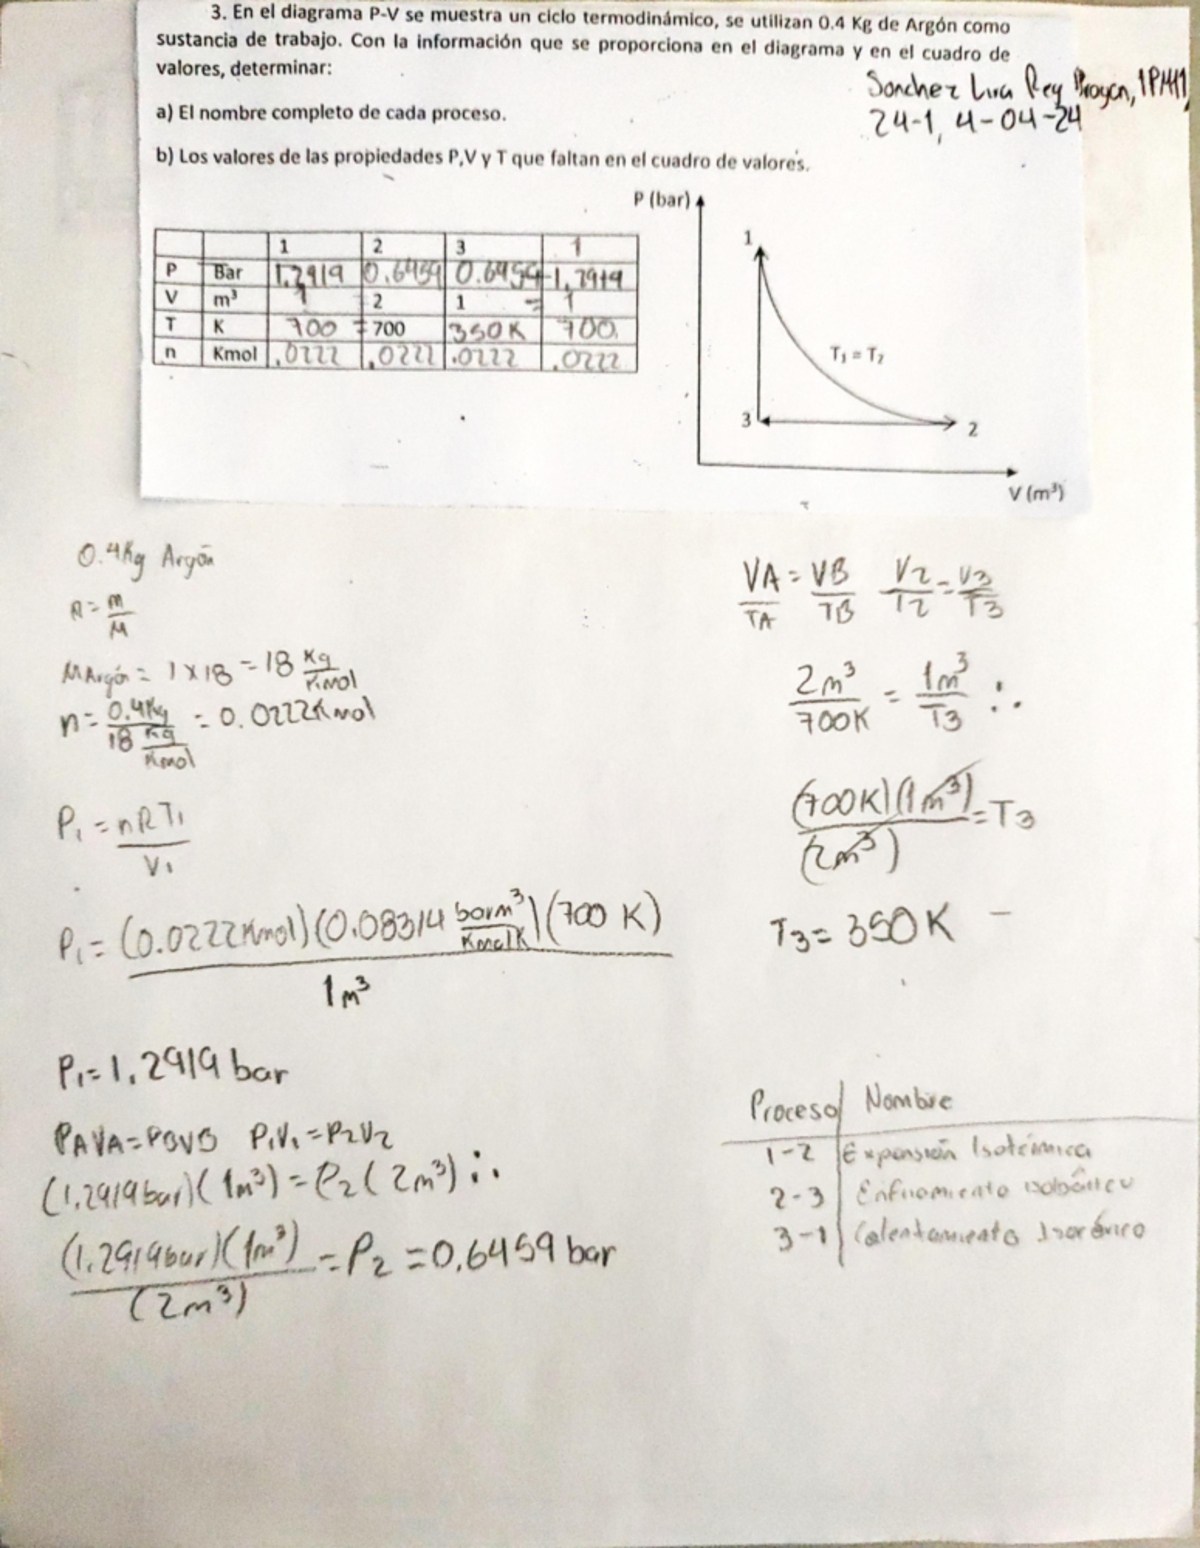 3. En el diagrama P-V se muestra un ciclo termodinámico, se utilizan 0.4 Kg de Argón como
sustancia de trabajo. Con la información que se proporciona en el diagrama y en el cuadro de
valores, determinar:
Sanchez Lira Rey Brayan, 1PM41,
24-1, 4-04-24
a) El nombre completo de cada proceso.
b) Los valores de las propiedades P,V y T que faltan en el cuadro de valores.
1 2 3 1
P Bar 1.2919 0.6459 0.6459 1.2919
V m³ 1 2 1 = 1
T K 700 = 700 350K 700
n Kmol .0222 .0222 .0222 .0222
P (bar)
1
T₁ = T₂
3
2
V (m³)
0.4Kg Argón
n = m/M
MArgón = 1 x 18 = 18 Kg/Kmol
n = 0.4Kg / 18 Kg/Kmol = 0.0222Kmol
P₁ = nRT₁ / V₁
P₁ = (0.0222Kmol)(0.08314 barm³/KmolK)(700 K) / 1m³
P₁ = 1.2919 bar
PAVA = PBVB P₁V₁ = P₂V₂
(1.2919bar)(1m³) = P₂(2m³) ∴
(1.2919bar)(1m³) / (2m³) = P₂ = 0.6459 bar
VA/TA = VB/TB V2/T2 = V3/T3
2m³/700K = 1m³/T3 ∴
(700K)(1m³) / (2m³) = T3
T3 = 350K
Proceso Nombre
1-2 Expansión Isotérmica
2-3 Enfriamiento isobárico
3-1 Calentamiento Isocórico